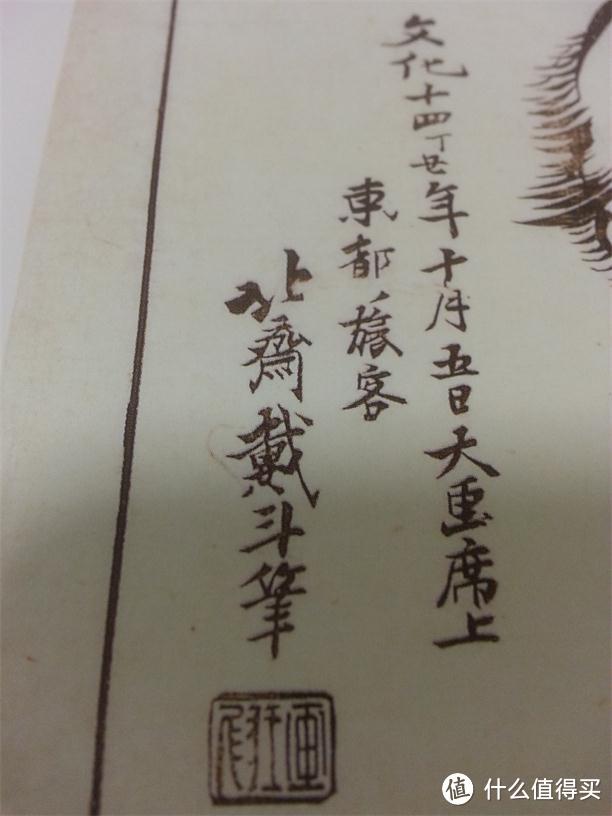 文化十四丁丑年十月五日大画席上
東都旅客
北齋戴斗筆
画狂人
值 什么值得买